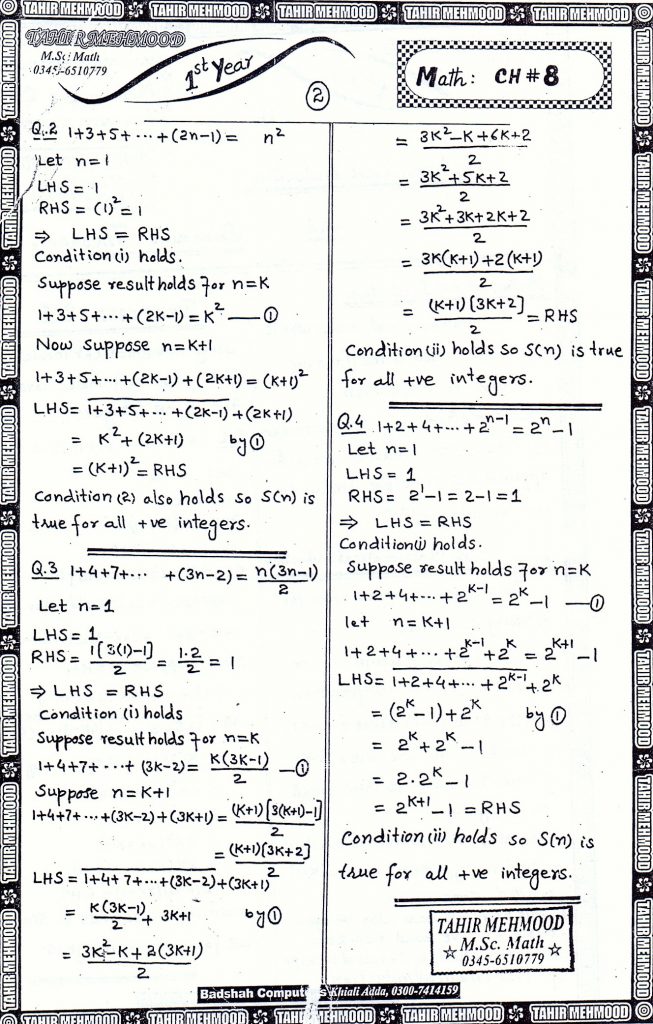 TAHIR MEHMOOD TAHIR MEHMOOD TAHIR MEHMOOD TAHIR MEHMOOD TAHIR MEHMOOD
TAHIR MEHMOOD
M.Sc: Math
0345-6510779
1st Year
2
Math: CH # 8
Q.2 1+3+5+ ... +(2n-1) = n²
Let n=1
LHS = 1
RHS = (1)² = 1
⇒ LHS = RHS
Condition(i) holds.
Suppose result holds for n=K
1+3+5+...+(2K-1) = K² —①
Now suppose n=K+1
1+3+5+...+(2K-1)+(2K+1) = (K+1)²
LHS = 1+3+5+...+(2K-1)+(2K+1)
= K²+(2K+1) by①
= (K+1)² = RHS
Condition (2) also holds so S(n) is
true for all +ve integers.
Q.3 1+4+7+... +(3n-2) = n(3n-1)/2
Let n=1
LHS = 1
RHS = 1[3(1)-1]/2 = 1.2/2 = 1
⇒ LHS = RHS
Condition (i) holds
Suppose result holds for n=K
1+4+7+ ...+ (3K-2) = K(3K-1)/2 —①
Suppose n=K+1
1+4+7+ ...+(3K-2)+(3K+1) = (K+1)[3(K+1)-1]/2
= (K+1)[3K+2]/2
LHS = 1+4+7+...+(3K-2)+(3K+1)
= K(3K-1)/2 + 3K+1 by①
= 3K²-K+2(3K+1)/2
= 3K²-K+6K+2/2
= 3K²+5K+2/2
= 3K²+3K+2K+2/2
= 3K(K+1)+2(K+1)/2
= (K+1)[3K+2]/2 = RHS
Condition(ii) holds so S(n) is true
for all +ve integers.
Q.4 1+2+4+...+2ⁿ⁻¹ = 2ⁿ-1
Let n=1
LHS = 1
RHS = 2¹-1 = 2-1 = 1
⇒ LHS = RHS
Condition(i) holds.
Suppose result holds for n=K
1+2+4+...+2ᴷ⁻¹ = 2ᴷ-1 —①
let n=K+1
1+2+4+...+2ᴷ⁻¹+2ᴷ = 2ᴷ⁺¹-1
LHS = 1+2+4+...+2ᴷ⁻¹+2ᴷ
= (2ᴷ-1)+2ᴷ by①
= 2ᴷ+2ᴷ-1
= 2.2ᴷ-1
= 2ᴷ⁺¹-1 = RHS
Condition(ii) holds so S(n) is
true for all +ve integers.
TAHIR MEHMOOD
M.Sc. Math
0345-6510779
Badshah Computers Khiali Adda, 0300-7414159
TAHIR MEHMOOD TAHIR MEHMOOD TAHIR MEHMOOD TAHIR MEHMOOD TAHIR MEHMOOD